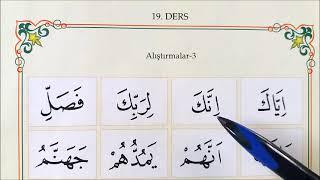 19. DERS
Alıştırmalar-3
اِيَّاكَ اِنَّكَ لِرَبِّكَ فَصَلِّ
اَنَّهُمْ يَمُدُّهُمْ جَهَنَّمُ